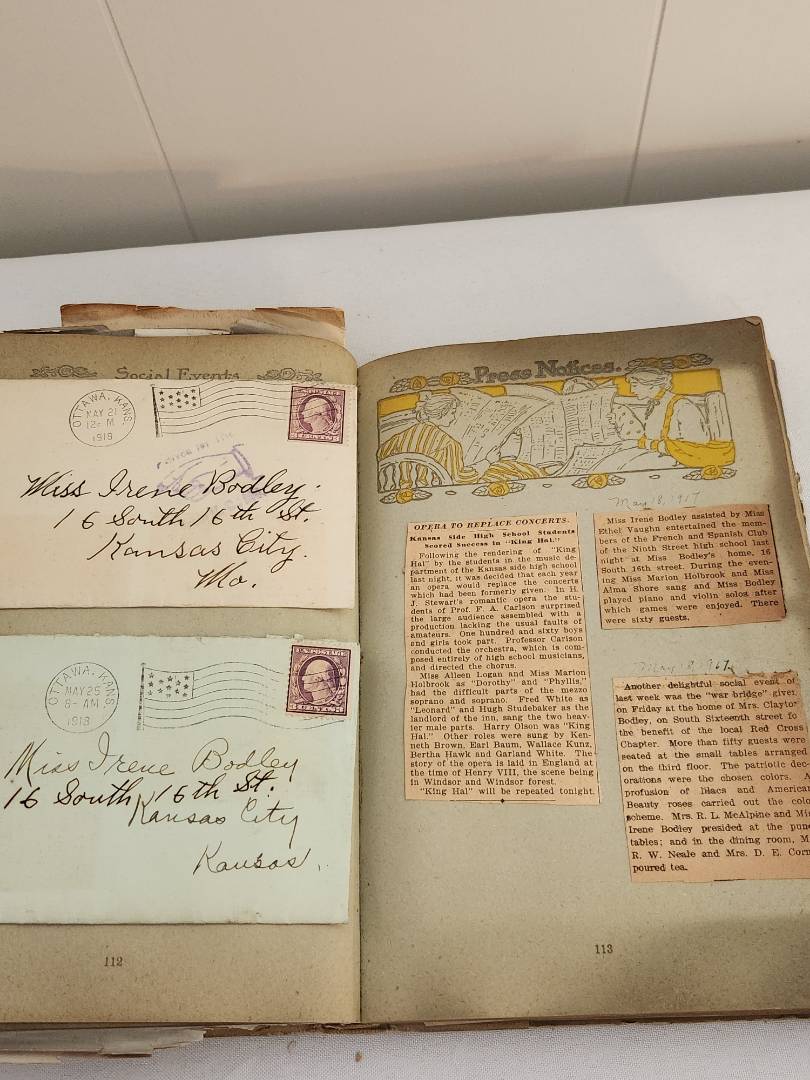 Social Events
OTTAWA, KANS.
MAY 21
12- M
1918
Miss Irene Bodley.
16 South 16th St.
Kansas City.
Mo.
OTTAWA, KANS.
MAY 25
8- AM
1918
Miss Irene Bodley
16 South 16th St.
Kansas City
Kansas.
112
Press Notices.
OPERA TO REPLACE CONCERTS.
Kansas Side High School Students
Scored Success in "King Hal."
Following the rendering of "King
Hal" by the students in the music de-
partment of the Kansas side high school
last night, it was decided that each year
an opera would replace the concerts
which had been formerly given. In H.
J. Stewart's romantic opera the stu-
dents of Prof. F. A. Carlson surprised
the large audience assembled with a
production lacking the usual faults of
amateurs. One hundred and sixty boys
and girls took part. Professor Carlson
conducted the orchestra, which is com-
posed entirely of high school musicians,
and directed the chorus.
Miss Alleen Logan and Miss Marion
Holbrook as "Dorothy" and "Phyllis,"
had the difficult parts of the mezzo
soprano and soprano. Fred White as
"Leonard" and Hugh Studebaker as the
landlord of the inn, sang the two heav-
ier male parts. Harry Olson was "King
Hal." Other roles were sung by Ken-
neth Brown, Earl Baum, Wallace Kunz,
Bertha Hawk and Garland White. The
story of the opera is laid in England at
the time of Henry VIII, the scene being
in Windsor and Windsor forest.
"King Hal" will be repeated tonight.
May 18, 1917
Miss Irene Bodley assisted by Miss
Ethel Vaughn entertained the mem-
bers of the French and Spanish Club
of the Ninth Street high school last
night at Miss Bodley's home, 16
South 16th street. During the even-
ing Miss Marion Holbrook and Miss
Alma Shore sang and Miss Bodley
played piano and violin solos after
which games were enjoyed. There
were sixty guests.
May 8,
Another delightful social event of
last week was the "war bridge" given
on Friday at the home of Mrs. Clayto
Bodley, on South Sixteenth street fo
the benefit of the local Red Cross
Chapter. More than fifty guests were
seated at the small tables arranged
on the third floor. The patriotic dec-
orations were the chosen colors. A
profusion of lilacs and American
Beauty roses carried out the colo
scheme. Mrs. R. L. McAlpine and Mi
Irene Bodley presided at the pun
tables; and in the dining room, M
R. W. Neale and Mrs. D. E. Corn
poured tea.
113